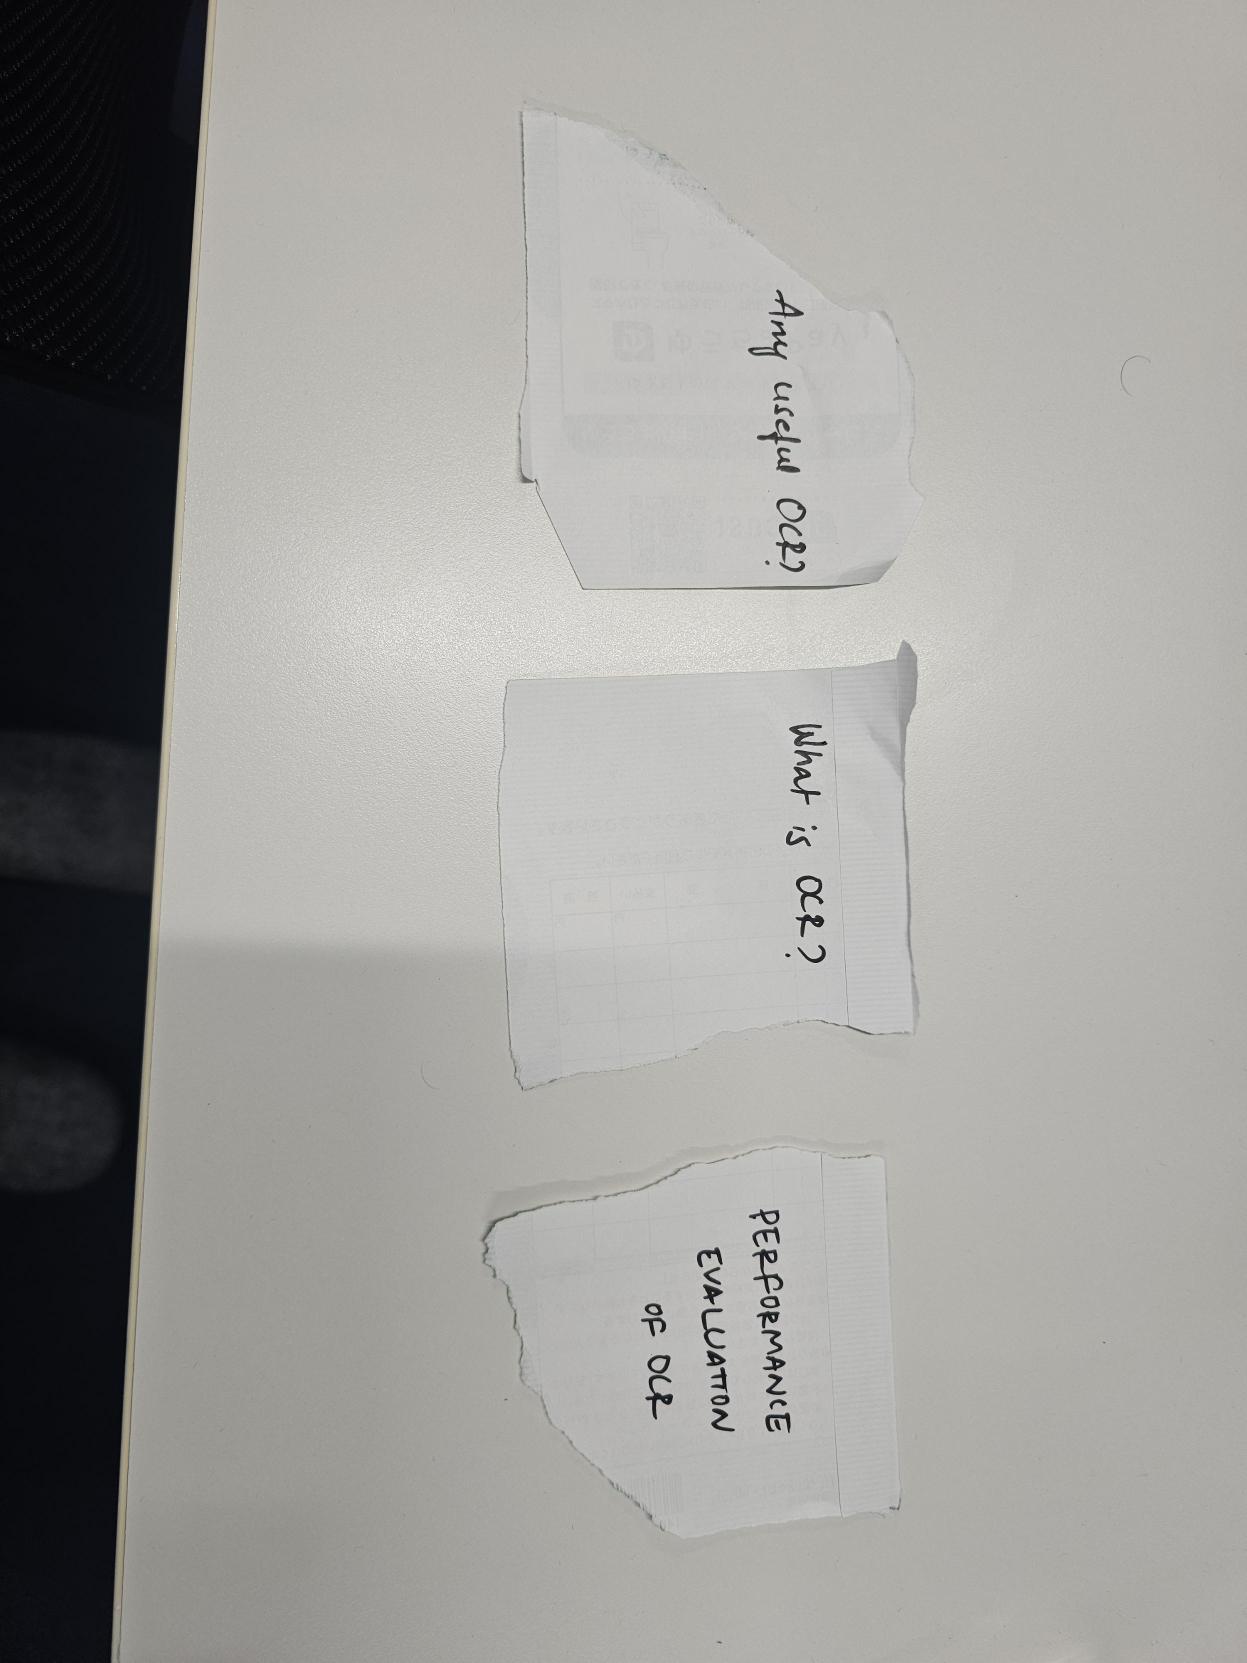 Any useful OCR?
What is OCR?
PERFORMANCE
EVALUATION
OF OCR